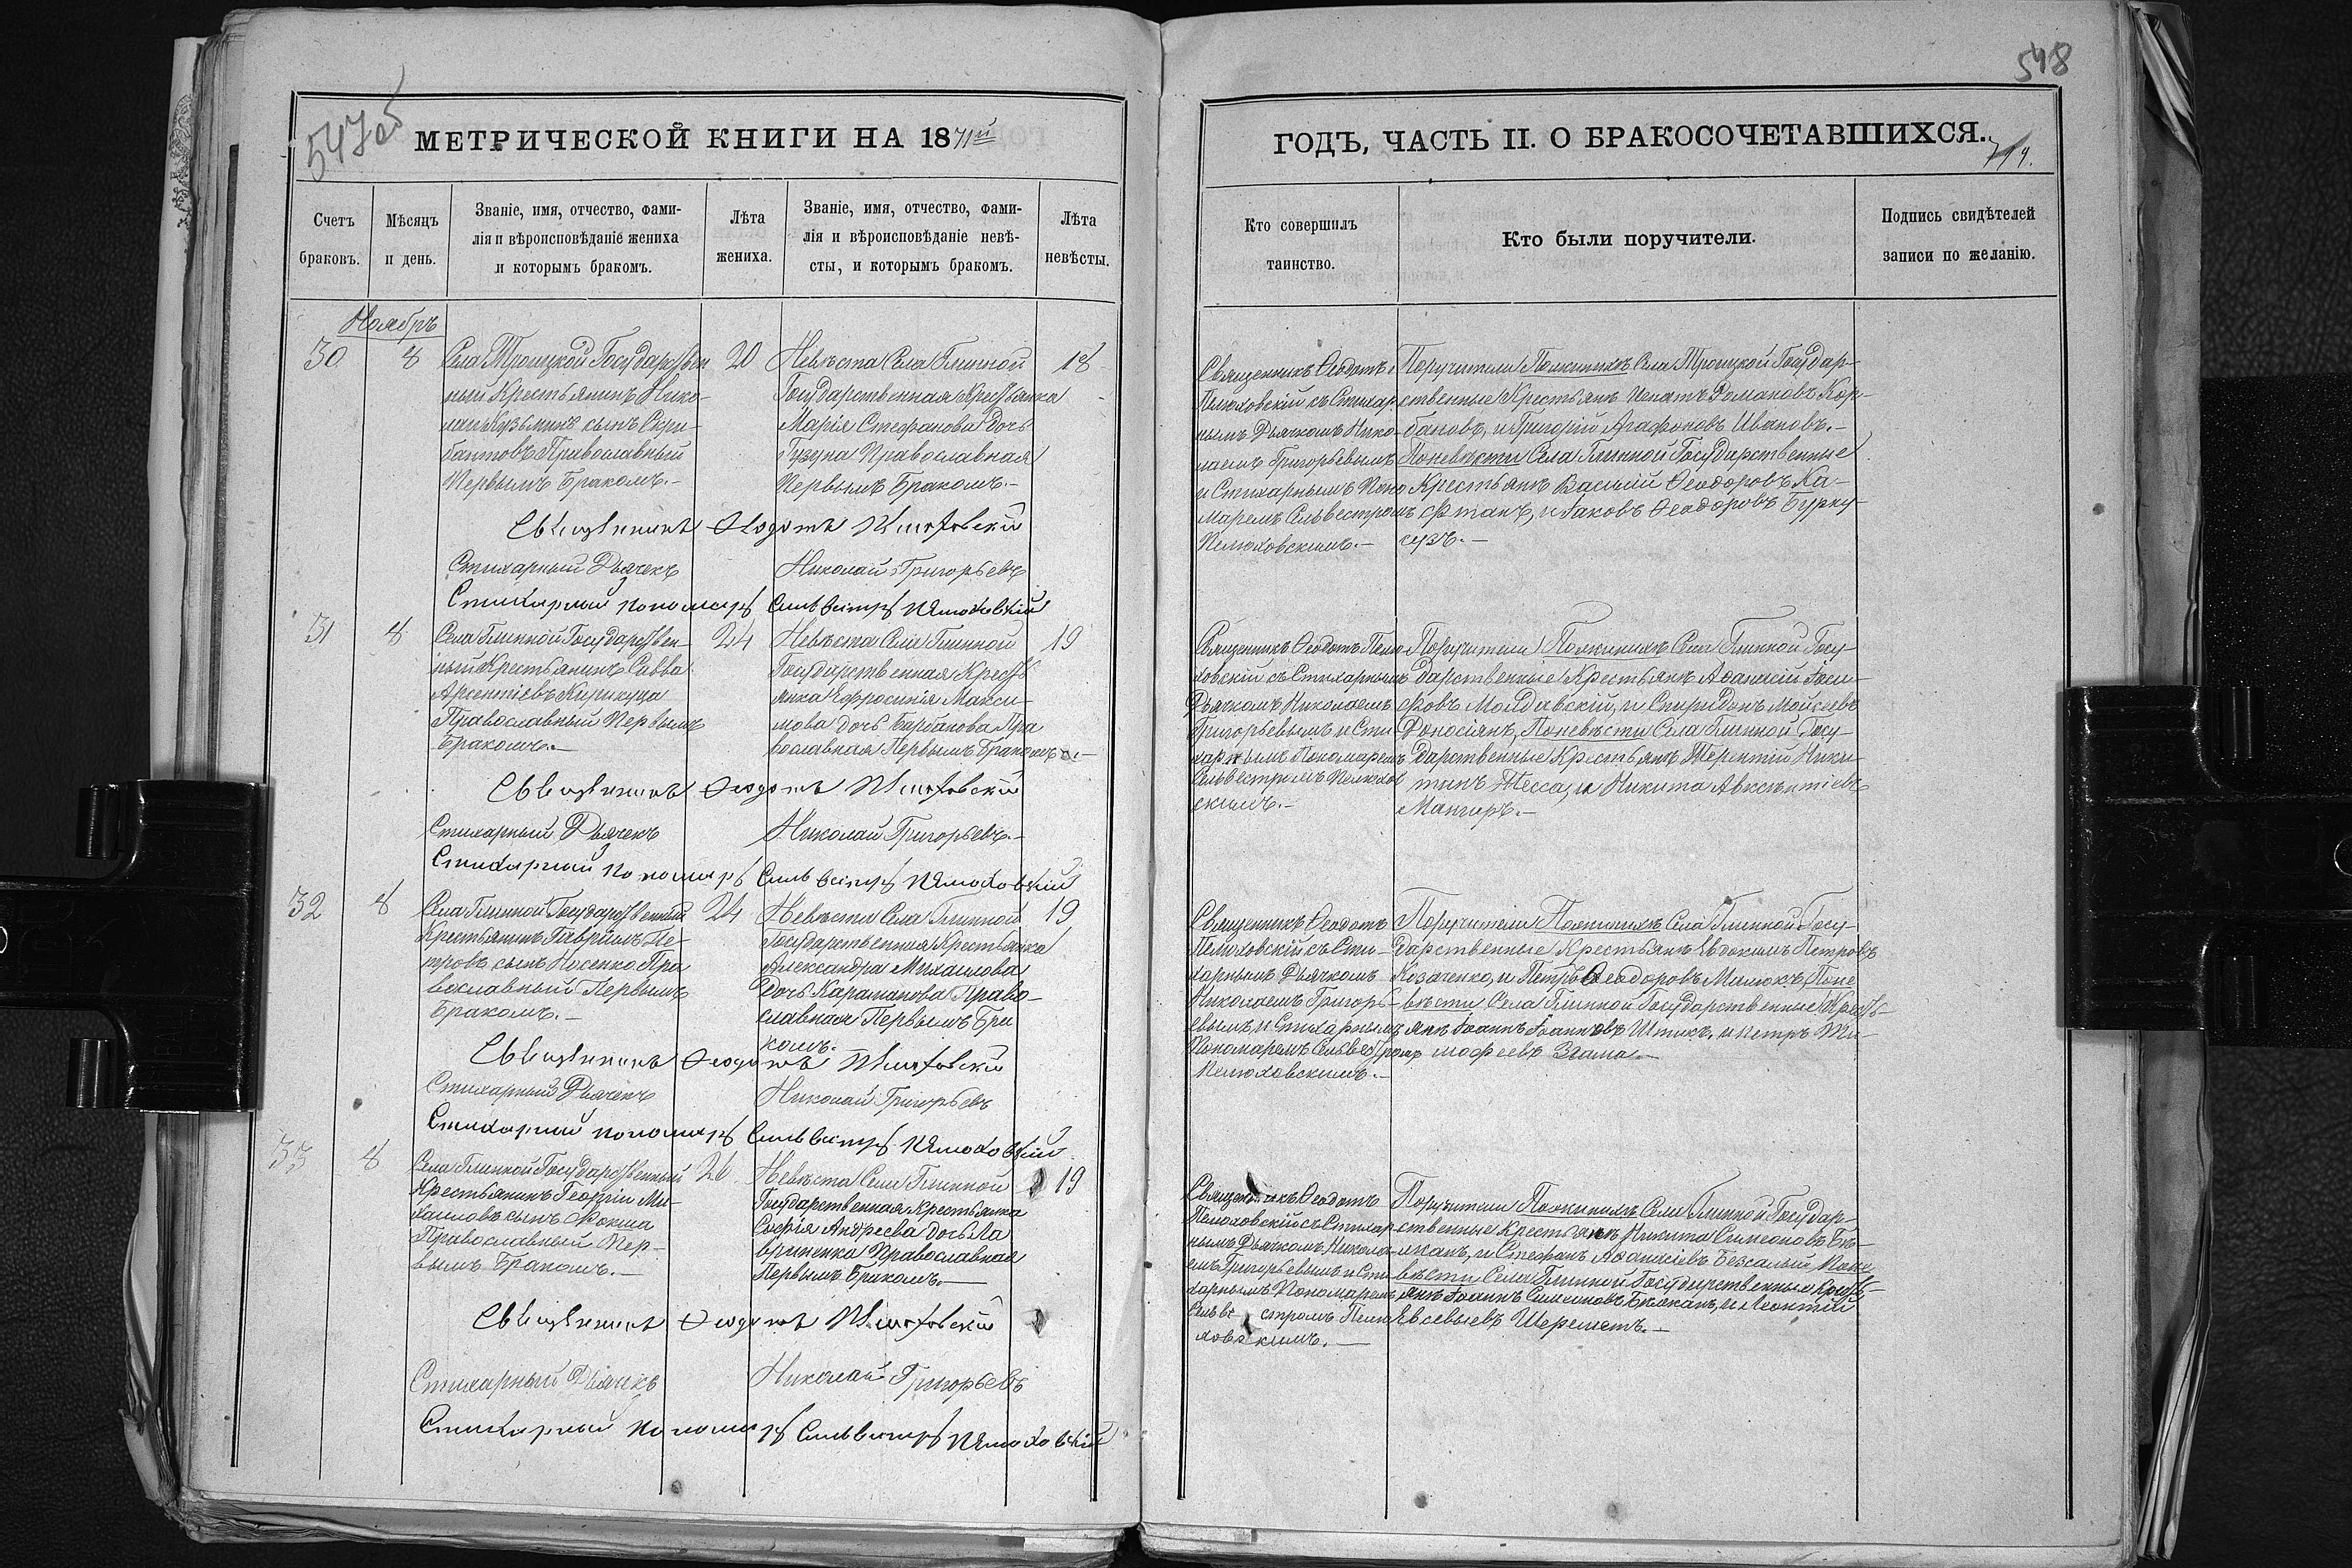 547об
548
МЕТРИЧЕСКОЙ КНИГИ НА 1871й
ГОДЪ, ЧАСТЬ II. О БРАКОСОЧЕТАВШИХСЯ.
Счетъ браковъ.
Мѣсяцъ и день.
Званіе, имя, отчество, фами-
лія и вѣроисповѣданіе жениха
и которымъ бракомъ.
Лѣта жениха.
Званіе, имя, отчество, фами-
лія и вѣроисповѣданіе невѣ-
сты, и которымъ бракомъ.
Лѣта невѣсты.
Кто совершилъ
таинство.
Кто были поручители.
Подпись свидѣтелей
записи по желанію.
Ноябръ
30
8
Села Троицкой Государствен
ный Крестьянинъ Нико-
лай Козьминъ сынъ Скри-
бантовъ Православный
Первымъ Бракомъ.-
20
Невѣста Села Глинной
Государственная Крестьянка
Марія Стефанова Дочь
Гузуна Православная
Первымъ Бракомъ.-
18
Священникъ Ѳеодотъ
Пелюховскій съ Стихар
нымъ Дьячкомъ Нико-
лаемъ Григорьевымъ
и Стихарнымъ Поно
маремъ Сельвестромъ
Пелюховскимъ.-
Поручители По женихѣ Села Троицкой Государ-
ственные Крестьянѣ Игнатъ Романовъ Кор-
бановъ, и Григорій Агафоновъ Ивановъ.-
По невѣсти Села Глинной Государственные
Крестьянѣ Василій Ѳеодоровъ Ка-
фтанъ, и Іаковъ Ѳеодоровъ Бурку-
Священникъ Ѳеодотъ Пелюховскій
Стихарный Дьячекъ Николай Григорьевъ
Стихарный пономарь Сильвестръ Пелюховскій
31
8
Села Глинной Государствен-
ный Крестьянинъ Савва
Арсентіевъ Кирикуца
Православный Первымъ
Бракомъ.-
24
Невѣста Села Глинной
Государственная Кресть
янка Ефросинія Макси-
мова дочь Барбанова Пра
вославная Первымъ Бракомъ.-
19
Священникъ Ѳеодотъ Пелю
ховскій съ Стихарнымъ
Дьячкомъ Николаемъ
Григорьевымъ и Сти
харнымъ Пономаремъ
Сельвестромъ Пелюхов
скимъ.-
Поручители По женихѣ Села Глинной Госу-
дарственные Крестьянѣ Аѳанасій Іоси-
фовъ Молдавскій, и Спиридонъ Мойсеевъ
По невѣсти Села Глинной Госу-
дарственные Крестьянѣ Терентій Ники-
тинъ Жесса, и Никита Авксентіевъ
Мангоръ.-
Священникъ Ѳеодотъ Пелюховскій
Стихарный Дьячекъ Николай Григорьевъ.-
Стихарный пономарь Сильвестръ Пелюховскій
32
8
Села Глинной Государственный
Крестьянинъ Гавріилъ Пе-
тровъ сынъ Носенко Пра
вославный Первымъ
Бракомъ.-
24
Невѣста Села Глинной
Государственная Крестьянка
Александра Михаилова
Дочь Караманова Право-
славная Первымъ Бра
комъ.
19
Священникъ Ѳеодотъ
Пелюховскій съ Сти-
харнымъ Дьячкомъ
Николаемъ Григорь-
евымъ и Стихарнымъ
Пономаремъ Сельвестромъ
Пелюховскимъ.-
Поручители По женихѣ Села Глинной Госу-
дарственные Крестьянѣ Евдокимъ Петровъ
Козаченко, и Петръ Ѳеодоровъ Малюкъ, По не
вѣсти Села Глинной Государственные Кресть-
янѣ Іоаннъ Іоанновъ Штикъ, и Петръ Ти-
мофеевъ Згама.-
Священникъ Ѳеодотъ Пелюховскій
Стихарный Дьячекъ Николай Григорьевъ
Стихарный пономарь Сильвестръ Пелюховскій
33
8
Села Глинной Государственный
Крестьянинъ Георгій Ми-
хаиловъ сынъ Фокша
Православный Пер-
вымъ Бракомъ.-
26
Невѣста Села Глинной
Государственная Крестьянка
Софія Андреева дочь Ла
вриненка Православная
Первымъ Бракомъ.-
19
Священникъ Ѳеодотъ
Пелюховскій съ Стихар
нымъ Дьячкомъ Никола-
емъ Григорьевымъ и Сти
харнымъ Пономаремъ
Сельвестромъ Пелю
ховскимъ.-
Поручители По женихѣ Села Глинной Государ-
ственные Крестьянѣ Никита Симеоновъ Бѣ-
лканъ, и Стефанъ Аѳанасіевъ Безсалый По не
вѣсти Села Глинной Государственные Кресть-
янѣ Іоаннъ Симеоновъ Бѣлканъ, и Леонтій
Евсевьевъ Шереметъ.-
Священникъ Ѳеодотъ Пелюховскій
Стихарный Дьячекъ Николай Григорьевъ
Стихарный пономарь Сильвестръ Пелюховскій